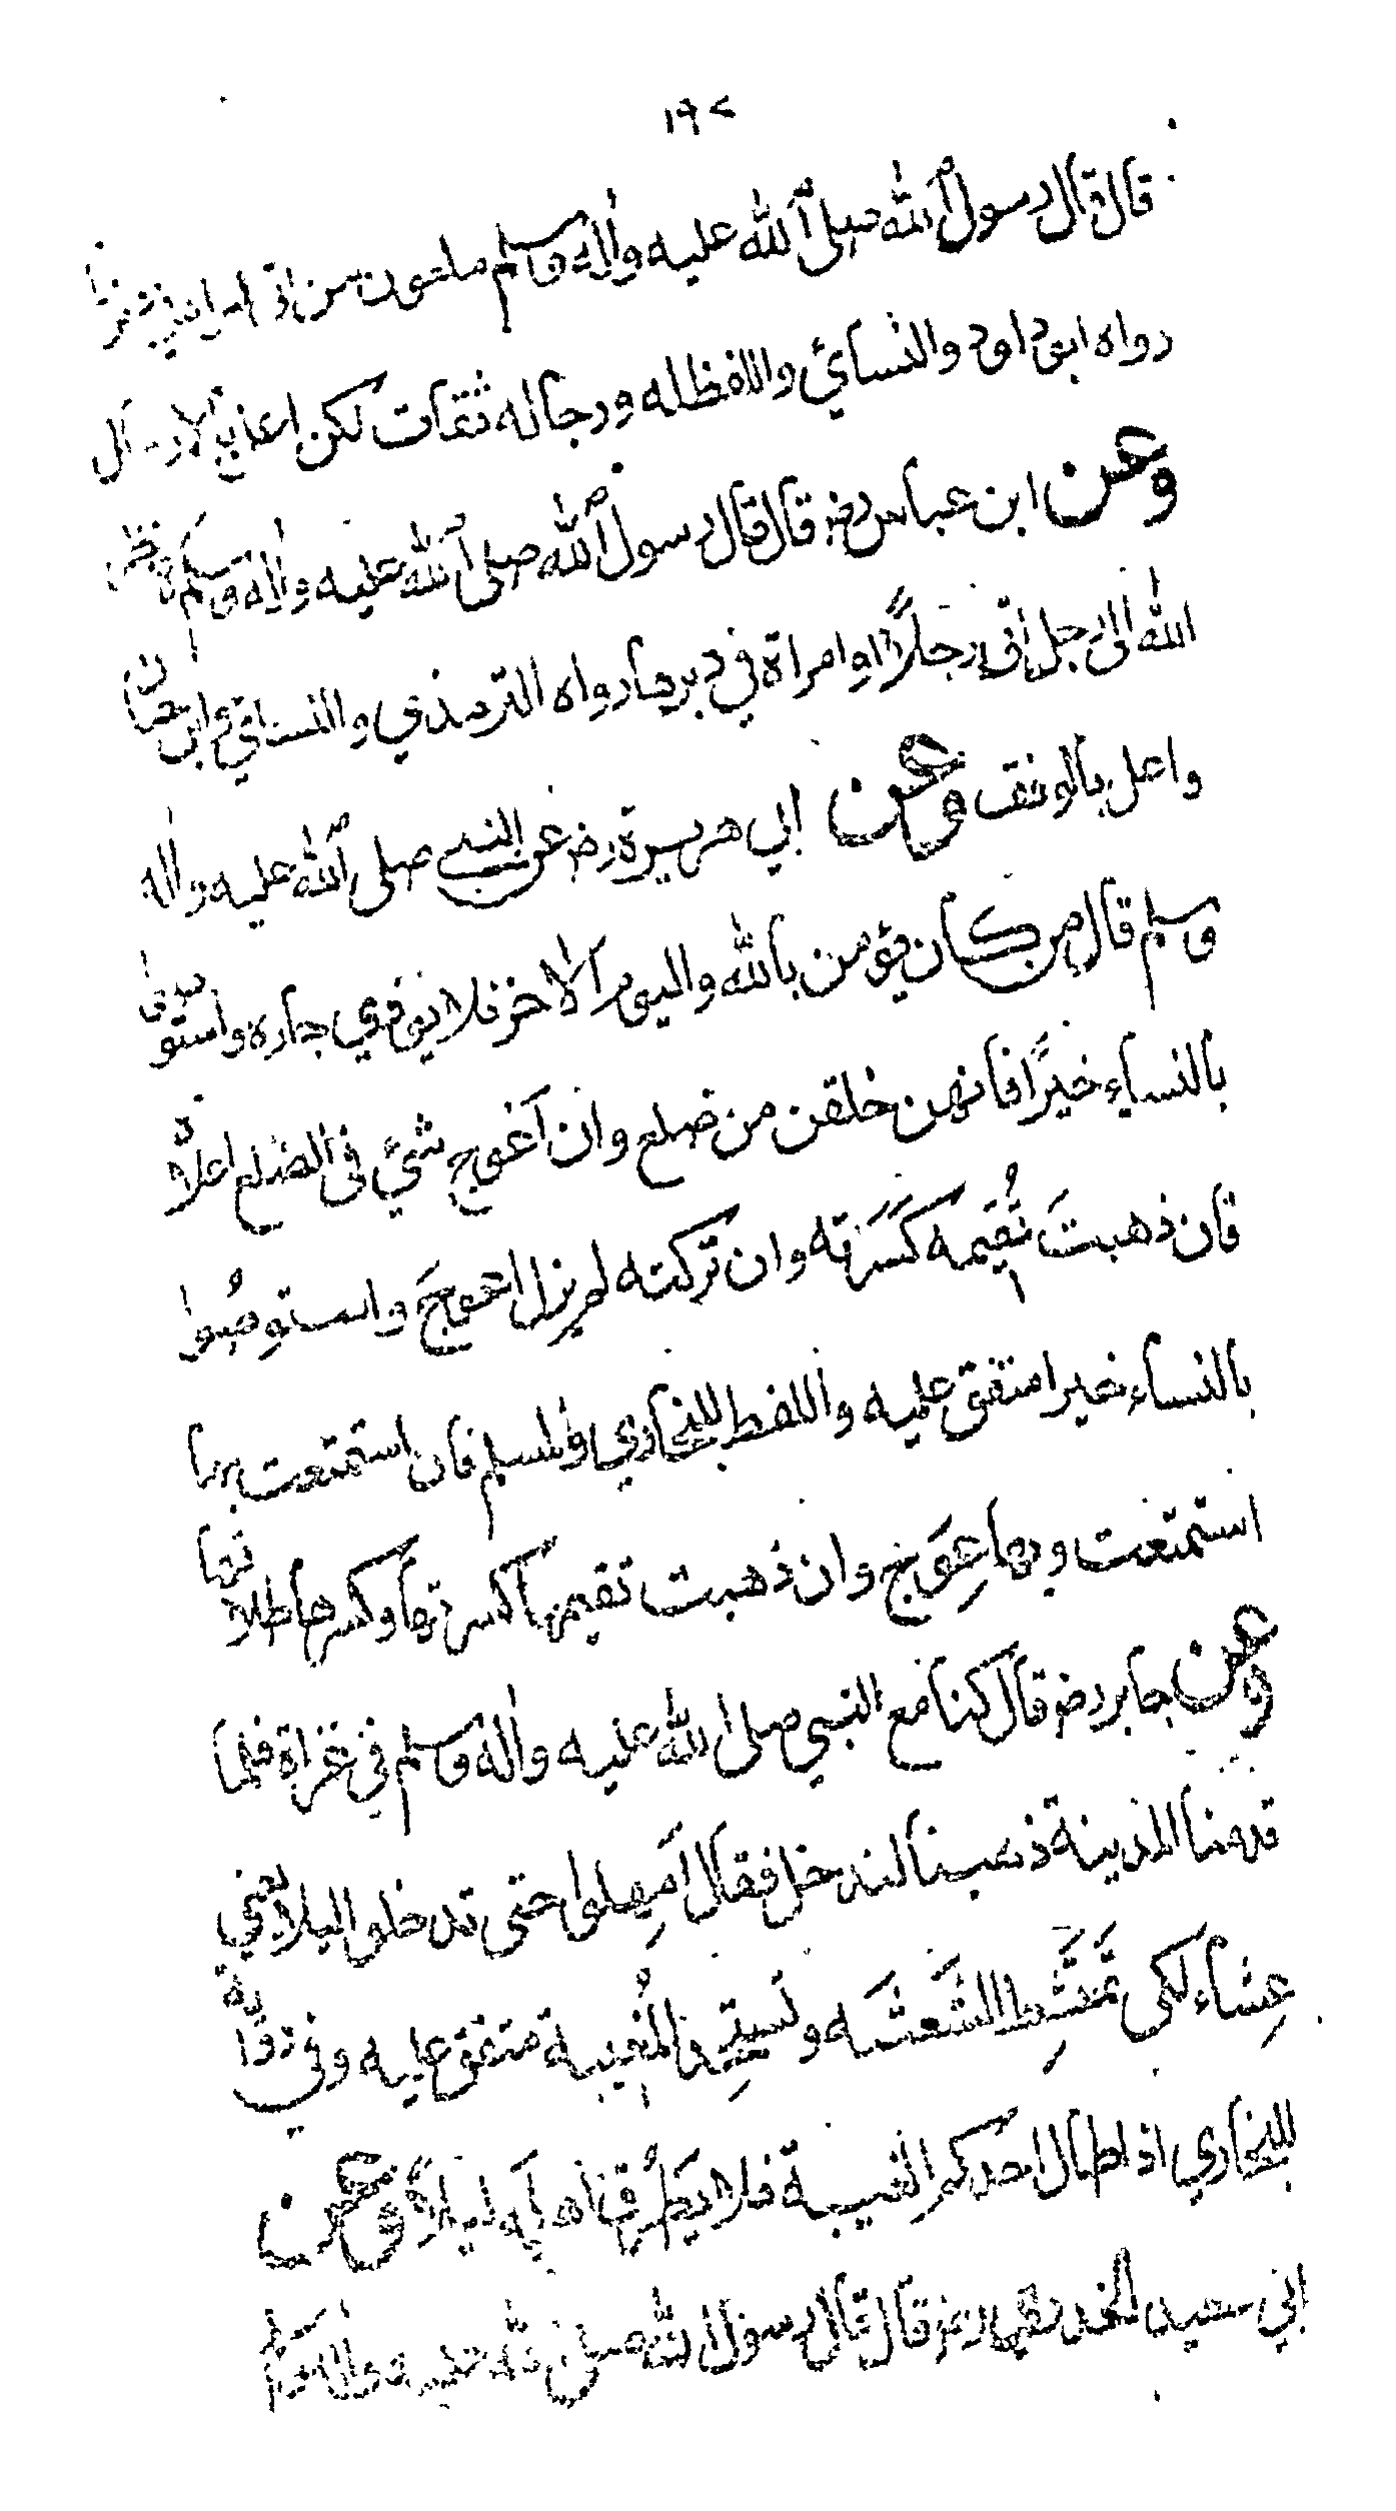 ١٩٢
قال قال رسول الله صلى الله عليه واله وسلم ملعون من اتى امراة في دبرها
رواه ابو داود والنسائي واللفظ له ورجاله ثقات لكن اعل بالارسال
وعن ابن عباس رضـ قال قال رسول الله صلى الله عليه واله وسلم لا ينظر
الله الى رجل اتى رجلاً او امراة في دبرها رواه الترمذي والنسائي وابن حبان
واعل بالوقف وعن ابي هريرة رضـ عن النبي صلى الله عليه واله
وسلم قال من كان يؤمن بالله واليوم الاخر فلا يوذي جاره واستوصوا
بالنساء خيرًا فانهن خلقن من ضلع وان اعوج شيء في الضلع اعلاه
فان ذهبتَ تُقيمه كَسَرته وان تركته لم يزل اعوجَ واستوصُوا
بالنساء خيرا متفق عليه واللفظ للبخاري ولمسلم فان استمتعت بها
استمتعت وبها عِوَج وان ذهبت تقيمها كسرتها وكسرها طلاقها
وعن جابر رضـ قال كنا مع النبي صلى الله عليه واله وسلم في غزاة فلما
قدمنا المدينة ذهبنا لندخل فقال اَمهِلوا حتى تدخلوا ليلا يعني
عِشاء لكي تَمتَشِط الشَعثَه وتستَحِد المُغيبة متفق عليه وفي رواية
للبخاري اذا طال احدكم الغيبة فلا يَطرُق اهله ليلاً وعن
ابي سعيد الخدري رضـ قال قال رسول الله صلى الله عليه واله وسلم